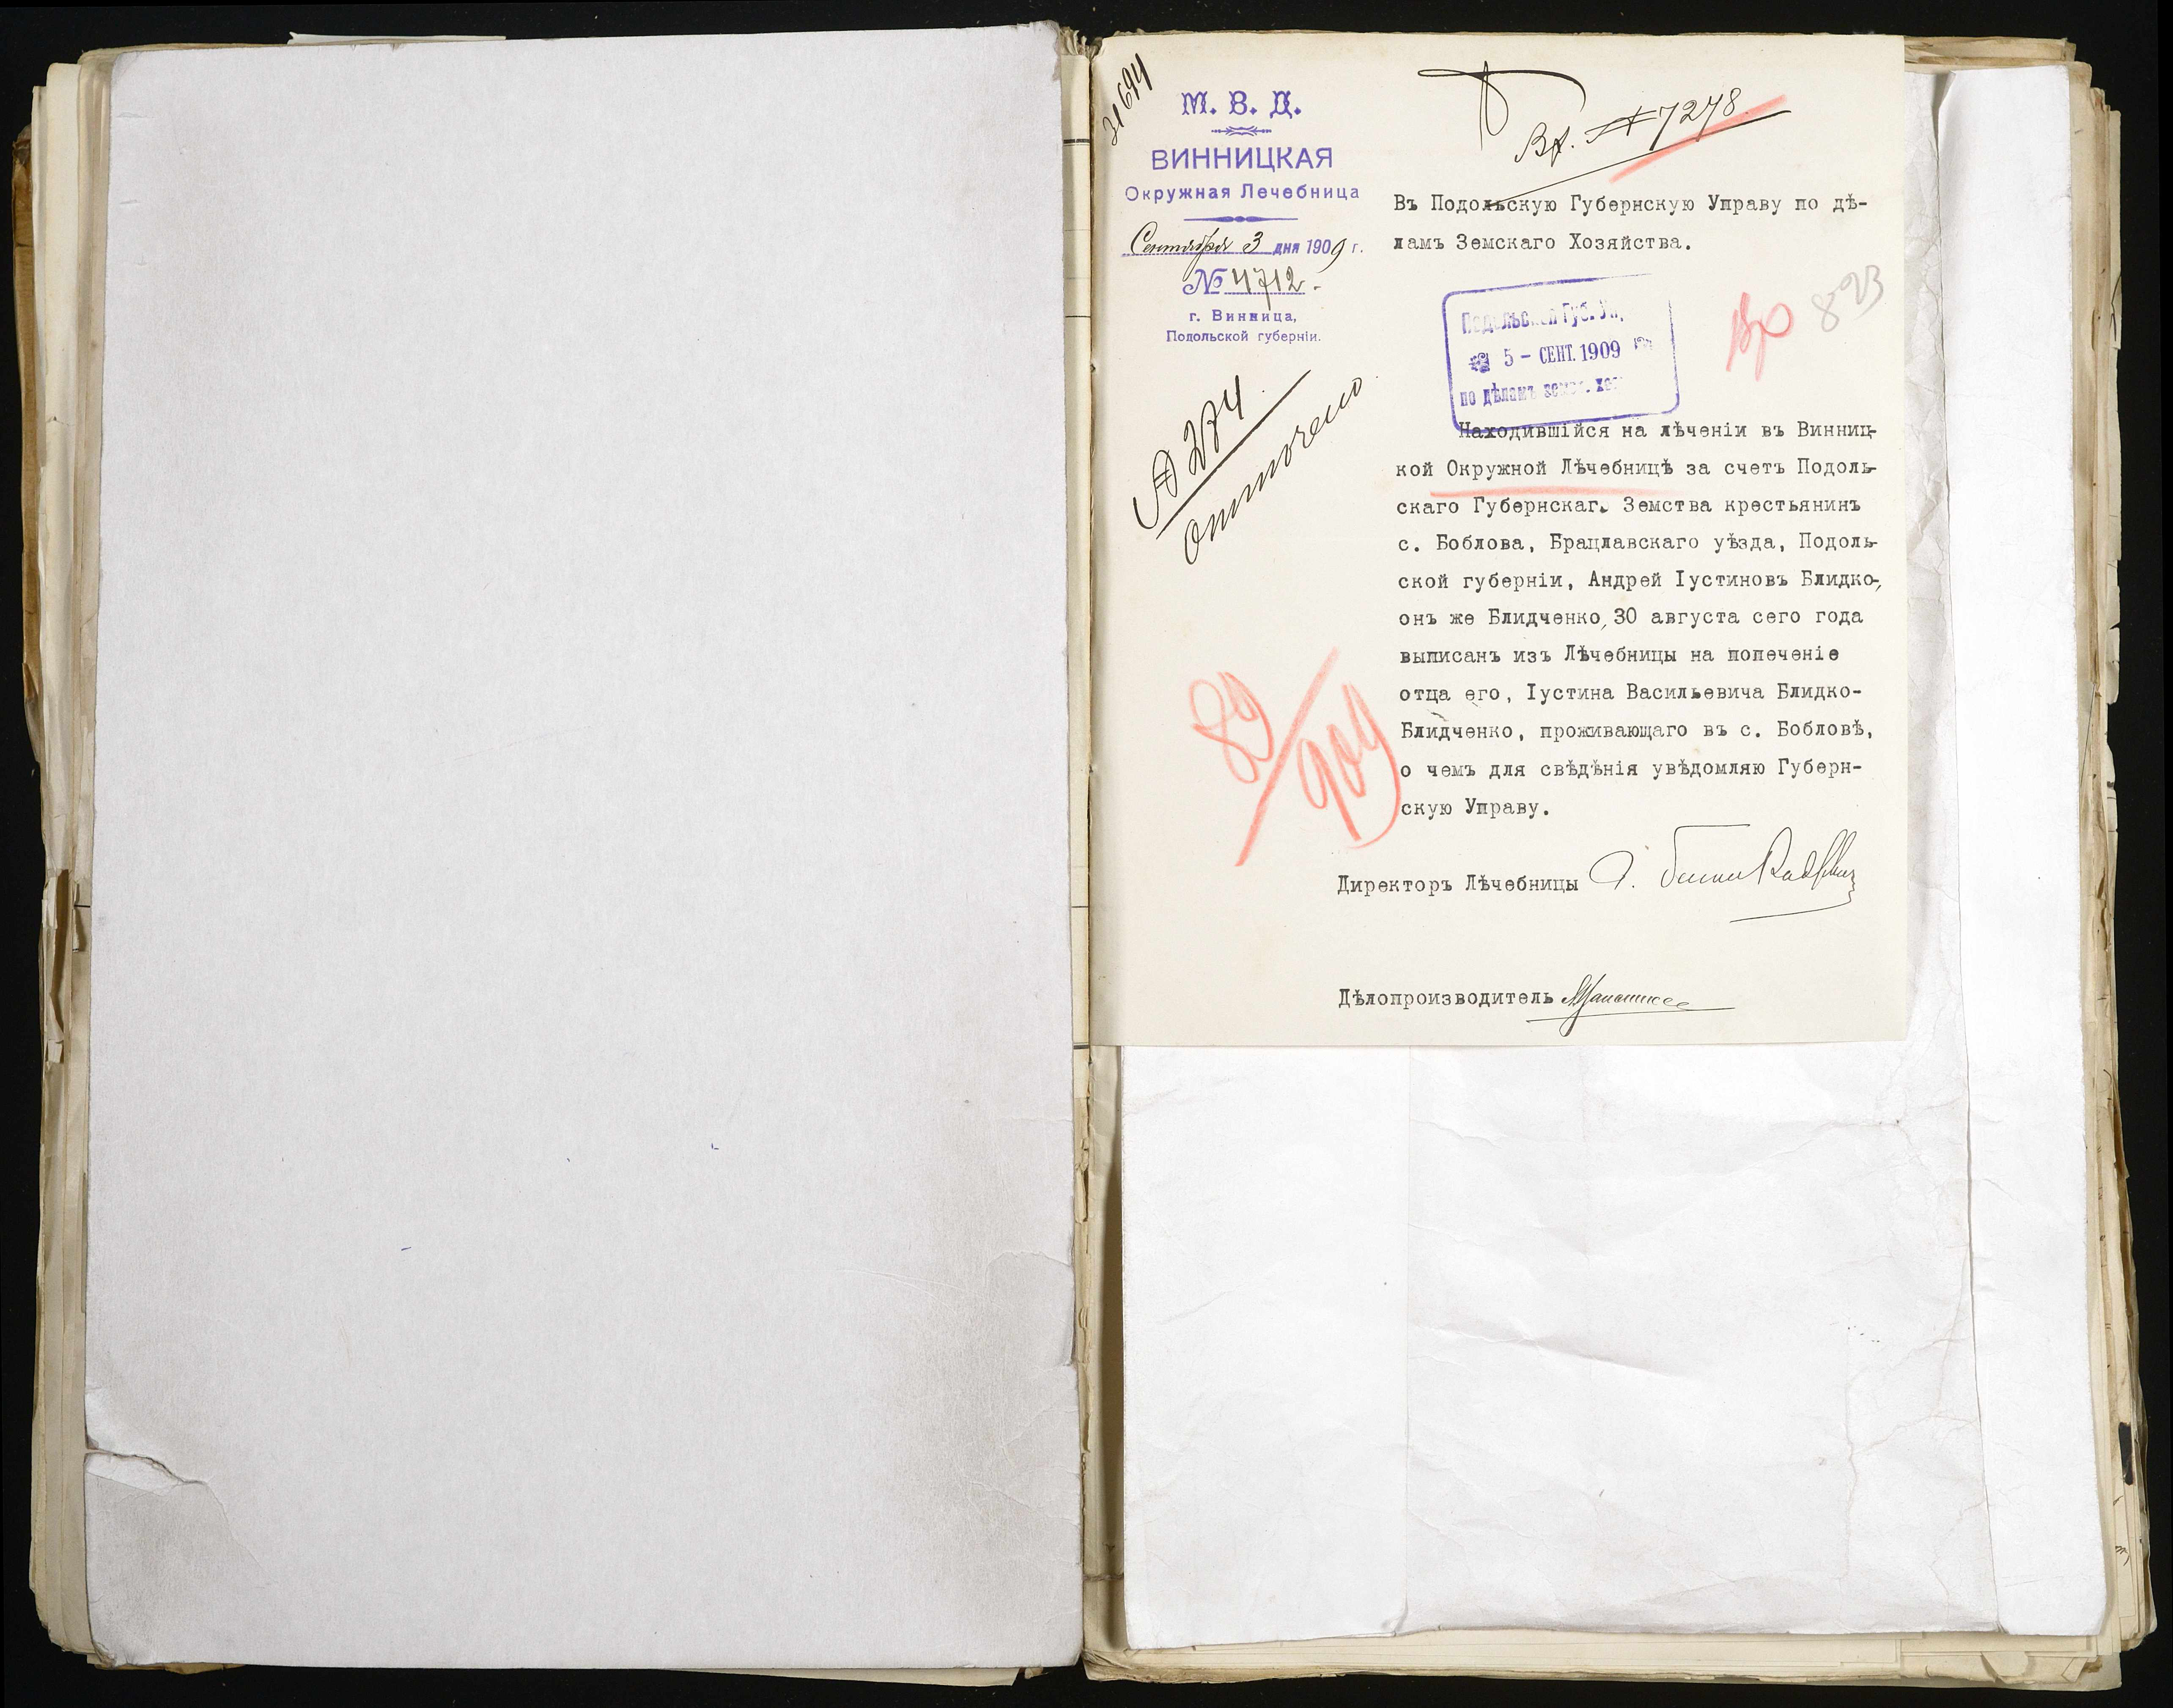 М. В. Д.
ВИННИЦКАЯ
Окружная Лечебница
Сентября 3 дня 1909 г.
№ 4712.
г. Винница,
Подольской губерніи.
Вх. № 7278
Въ Подольскую Губернскую Управу по дѣ-
ламъ Земскаго Хозяйства.
5 - СЕНТ. 1909
по дѣламъ
823
А 274
отмѣчено
Находившійся на лѣченіи въ Винниц-
кой Окружной Лѣчебницѣ за счетъ Подоль-
скаго Губернскаго Земства крестьянинъ
с. Боблова, Брацлавскаго уѣзда, Подоль-
ской губерніи, Андрей Іустиновъ Блидко-,
онъ же Блидченко, 30 августа сего года
выписанъ изъ Лѣчебницы на попеченіе
отца его, Іустина Васильевича Блидко-
Блидченко, проживающаго въ с. Бобловѣ,
о чемъ для свѣдѣнія увѣдомляю Губерн-
скую Управу.
89/909
Директоръ Лѣчебницы
Дѣлопроизводитель